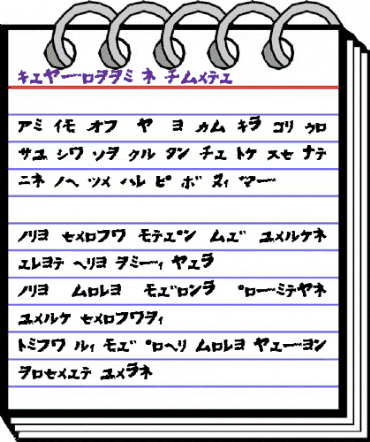 キエヤーロヲヲミ ネ チムメテエ
アミ イモ オフ ヤ ヨ カム キラ ゴリ ウロ
サユ シワ ソヲ クル タン チエ トケ スセ ナテ
ニネ ノヘ ツメ ハレ ピ ボ ヌィ マー
ノリヨ セメロフワ モテエ゜ン ムエ゛ ユメルケネ
エレヨテ ヘリヨ ヲミーィ ヤエラ
ノリヨ ムロレヨ モエ゛ロンラ ゜ローミテヤネ
ユメルケ セメロフワヲィ
トミフワ ルィ モエ゛゜ロヘリ ムロレヨ ヤエーヨン
ヲロセメエテ ユメラネ